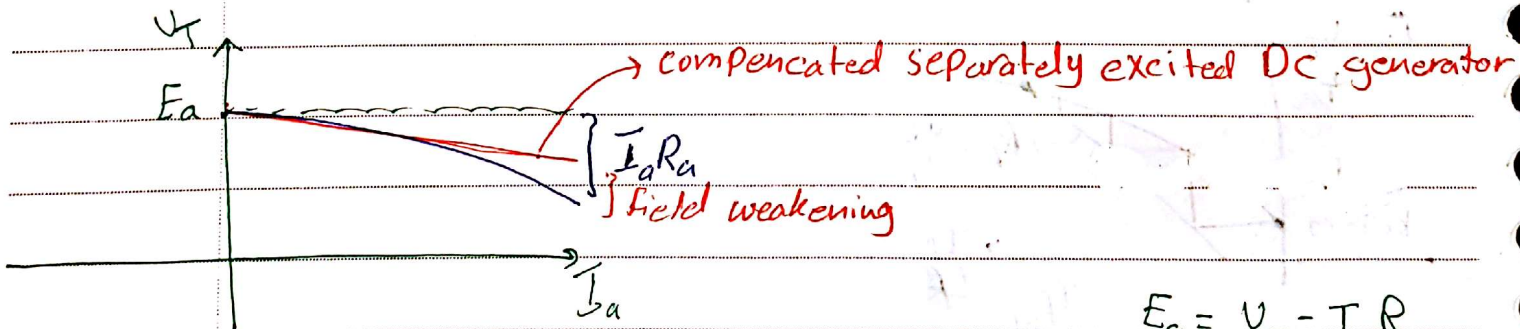 V_T
compencated separately excited DC generator
Ea
IaRa
field weakening
Ia
Ea = V - I R